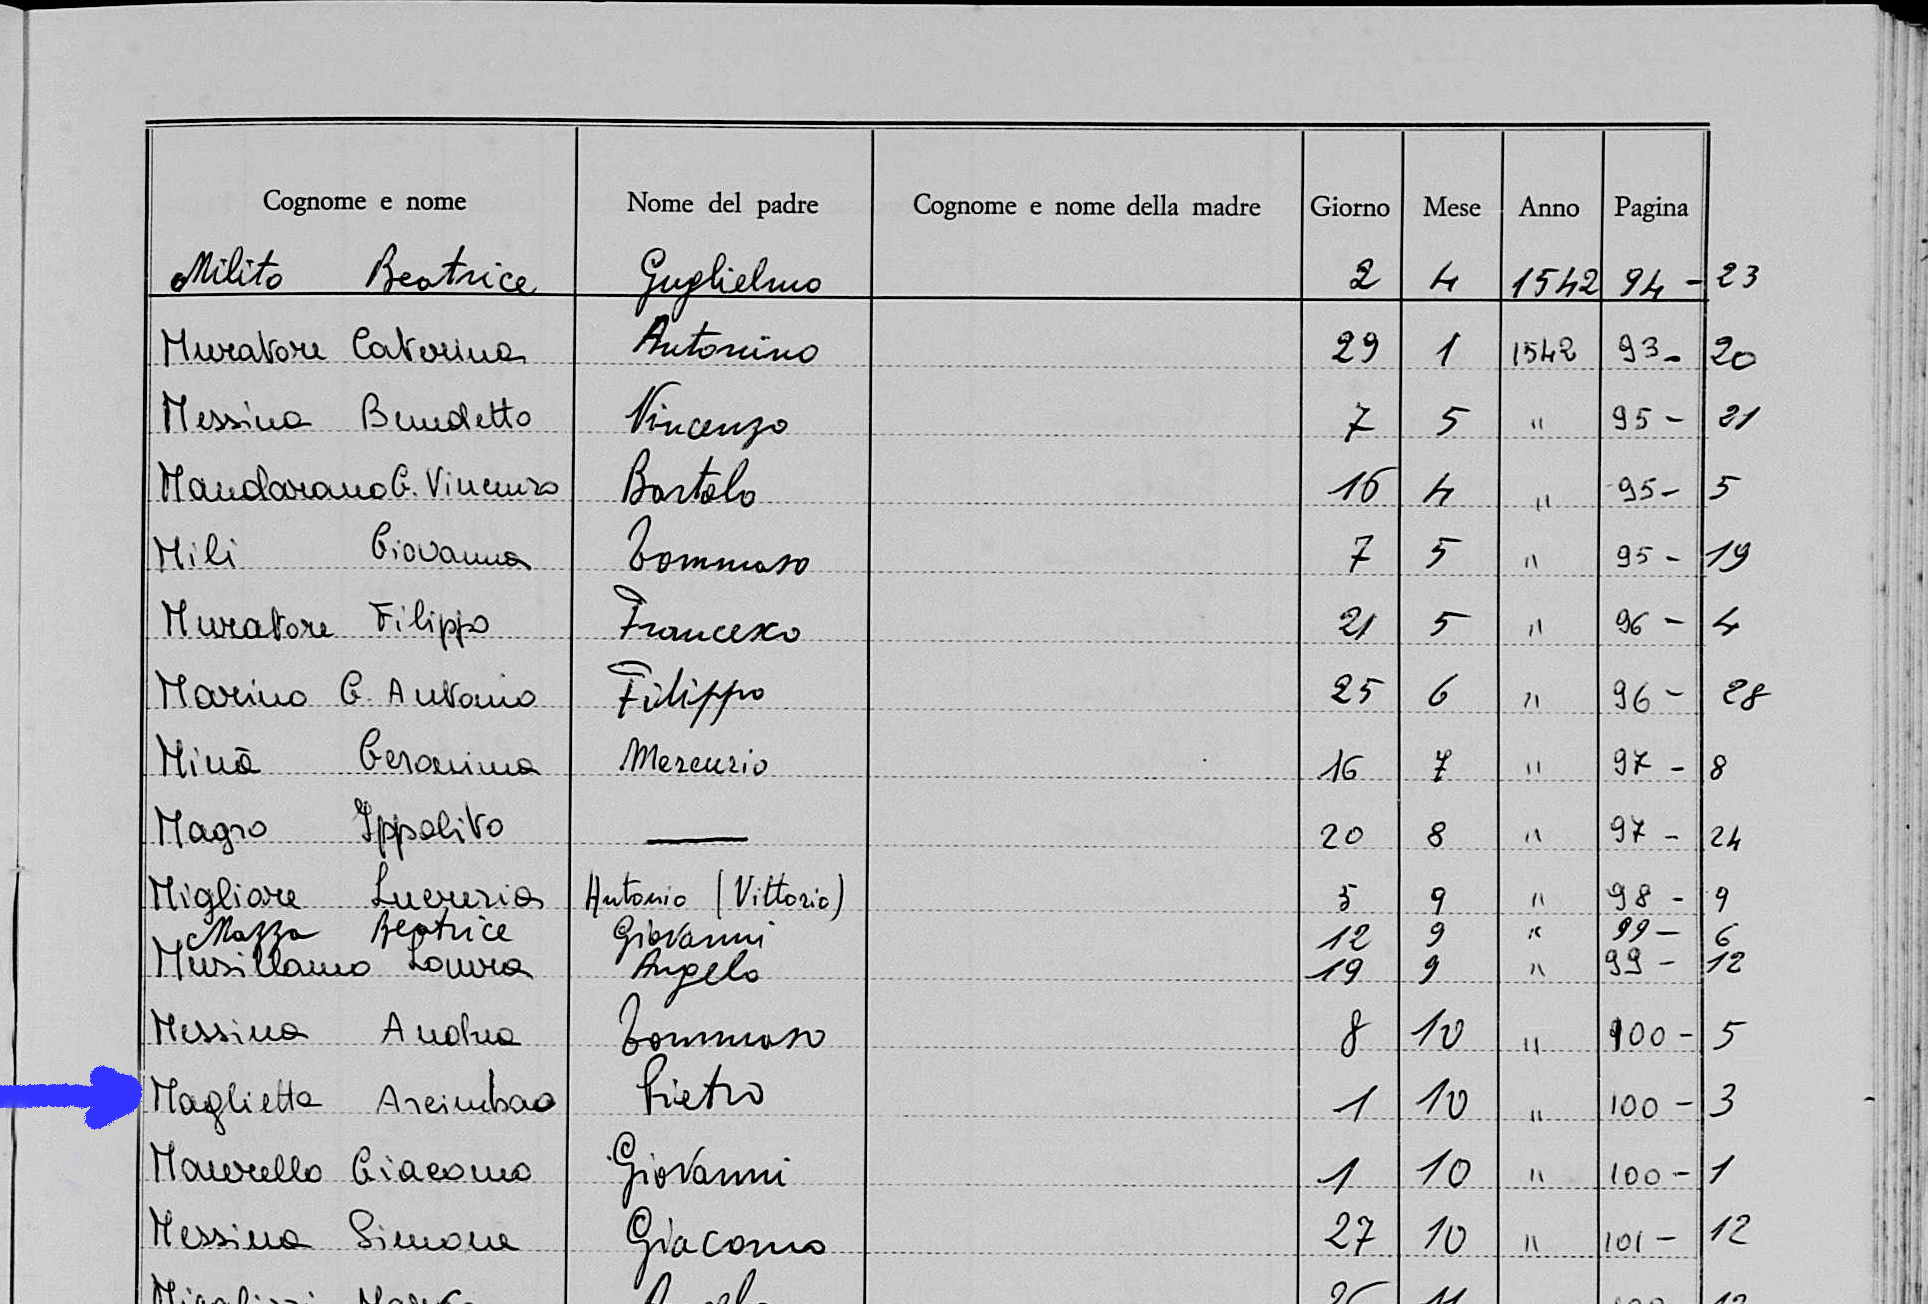 Cognome e nome Nome del padre Cognome e nome della madre Giorno Mese Anno Pagina
Milito Beatrice Guglielmo 2 4 1542 94 - 23
Muratore Caterina Antonino 29 1 1542 93 - 20
Messina Benedetto Vincenzo 7 5 " 95 - 21
Mandarano G. Vincenzo Bartolo 16 4 " 95 - 5
Mili Giovanna Tommaso 7 5 " 95 - 19
Muratore Filippo Francesco 21 5 " 96 - 4
Marino G. Antonio Filippo 25 6 " 96 - 28
Minà Geronima Mercurio 16 7 " 97 - 8
Magro Ippolito — 20 8 " 97 - 24
Migliore Lucrezia Antonio (Vittorio) 5 9 " 98 - 9
Mazza Beatrice Giovanni 12 9 " 99 - 6
Musillamo Laura Angelo 19 9 " 99 - 12
Messina Andrea Tommaso 8 10 " 100 - 5
Maglietta Pietro 1 10 " 100 - 3
Maurello Giacomo Giovanni 1 10 " 100 - 1
Messina Simone Giacomo 27 10 " 101 - 12